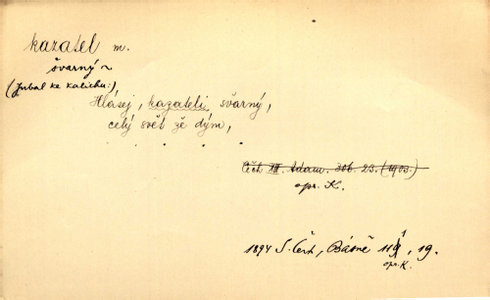 kazatel m.
švarný ~
(pukal ke kalichu:)
Hlásej, kazateli švarný,
celý svět že dým,
. . . . .
Čch III. Adam. 306. 23. (1903.)
opr. K.
1894 S. Čch, Básně 111, 19.
opr. K.